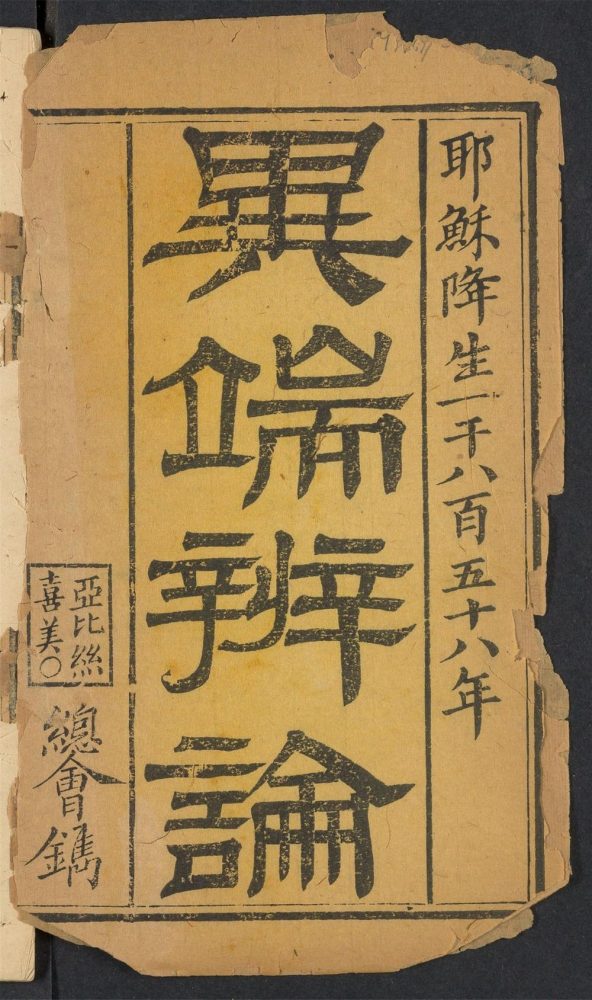 耶穌降生一千八百五十八年
異端辨論
亞比絲
喜美〇
總會鐫